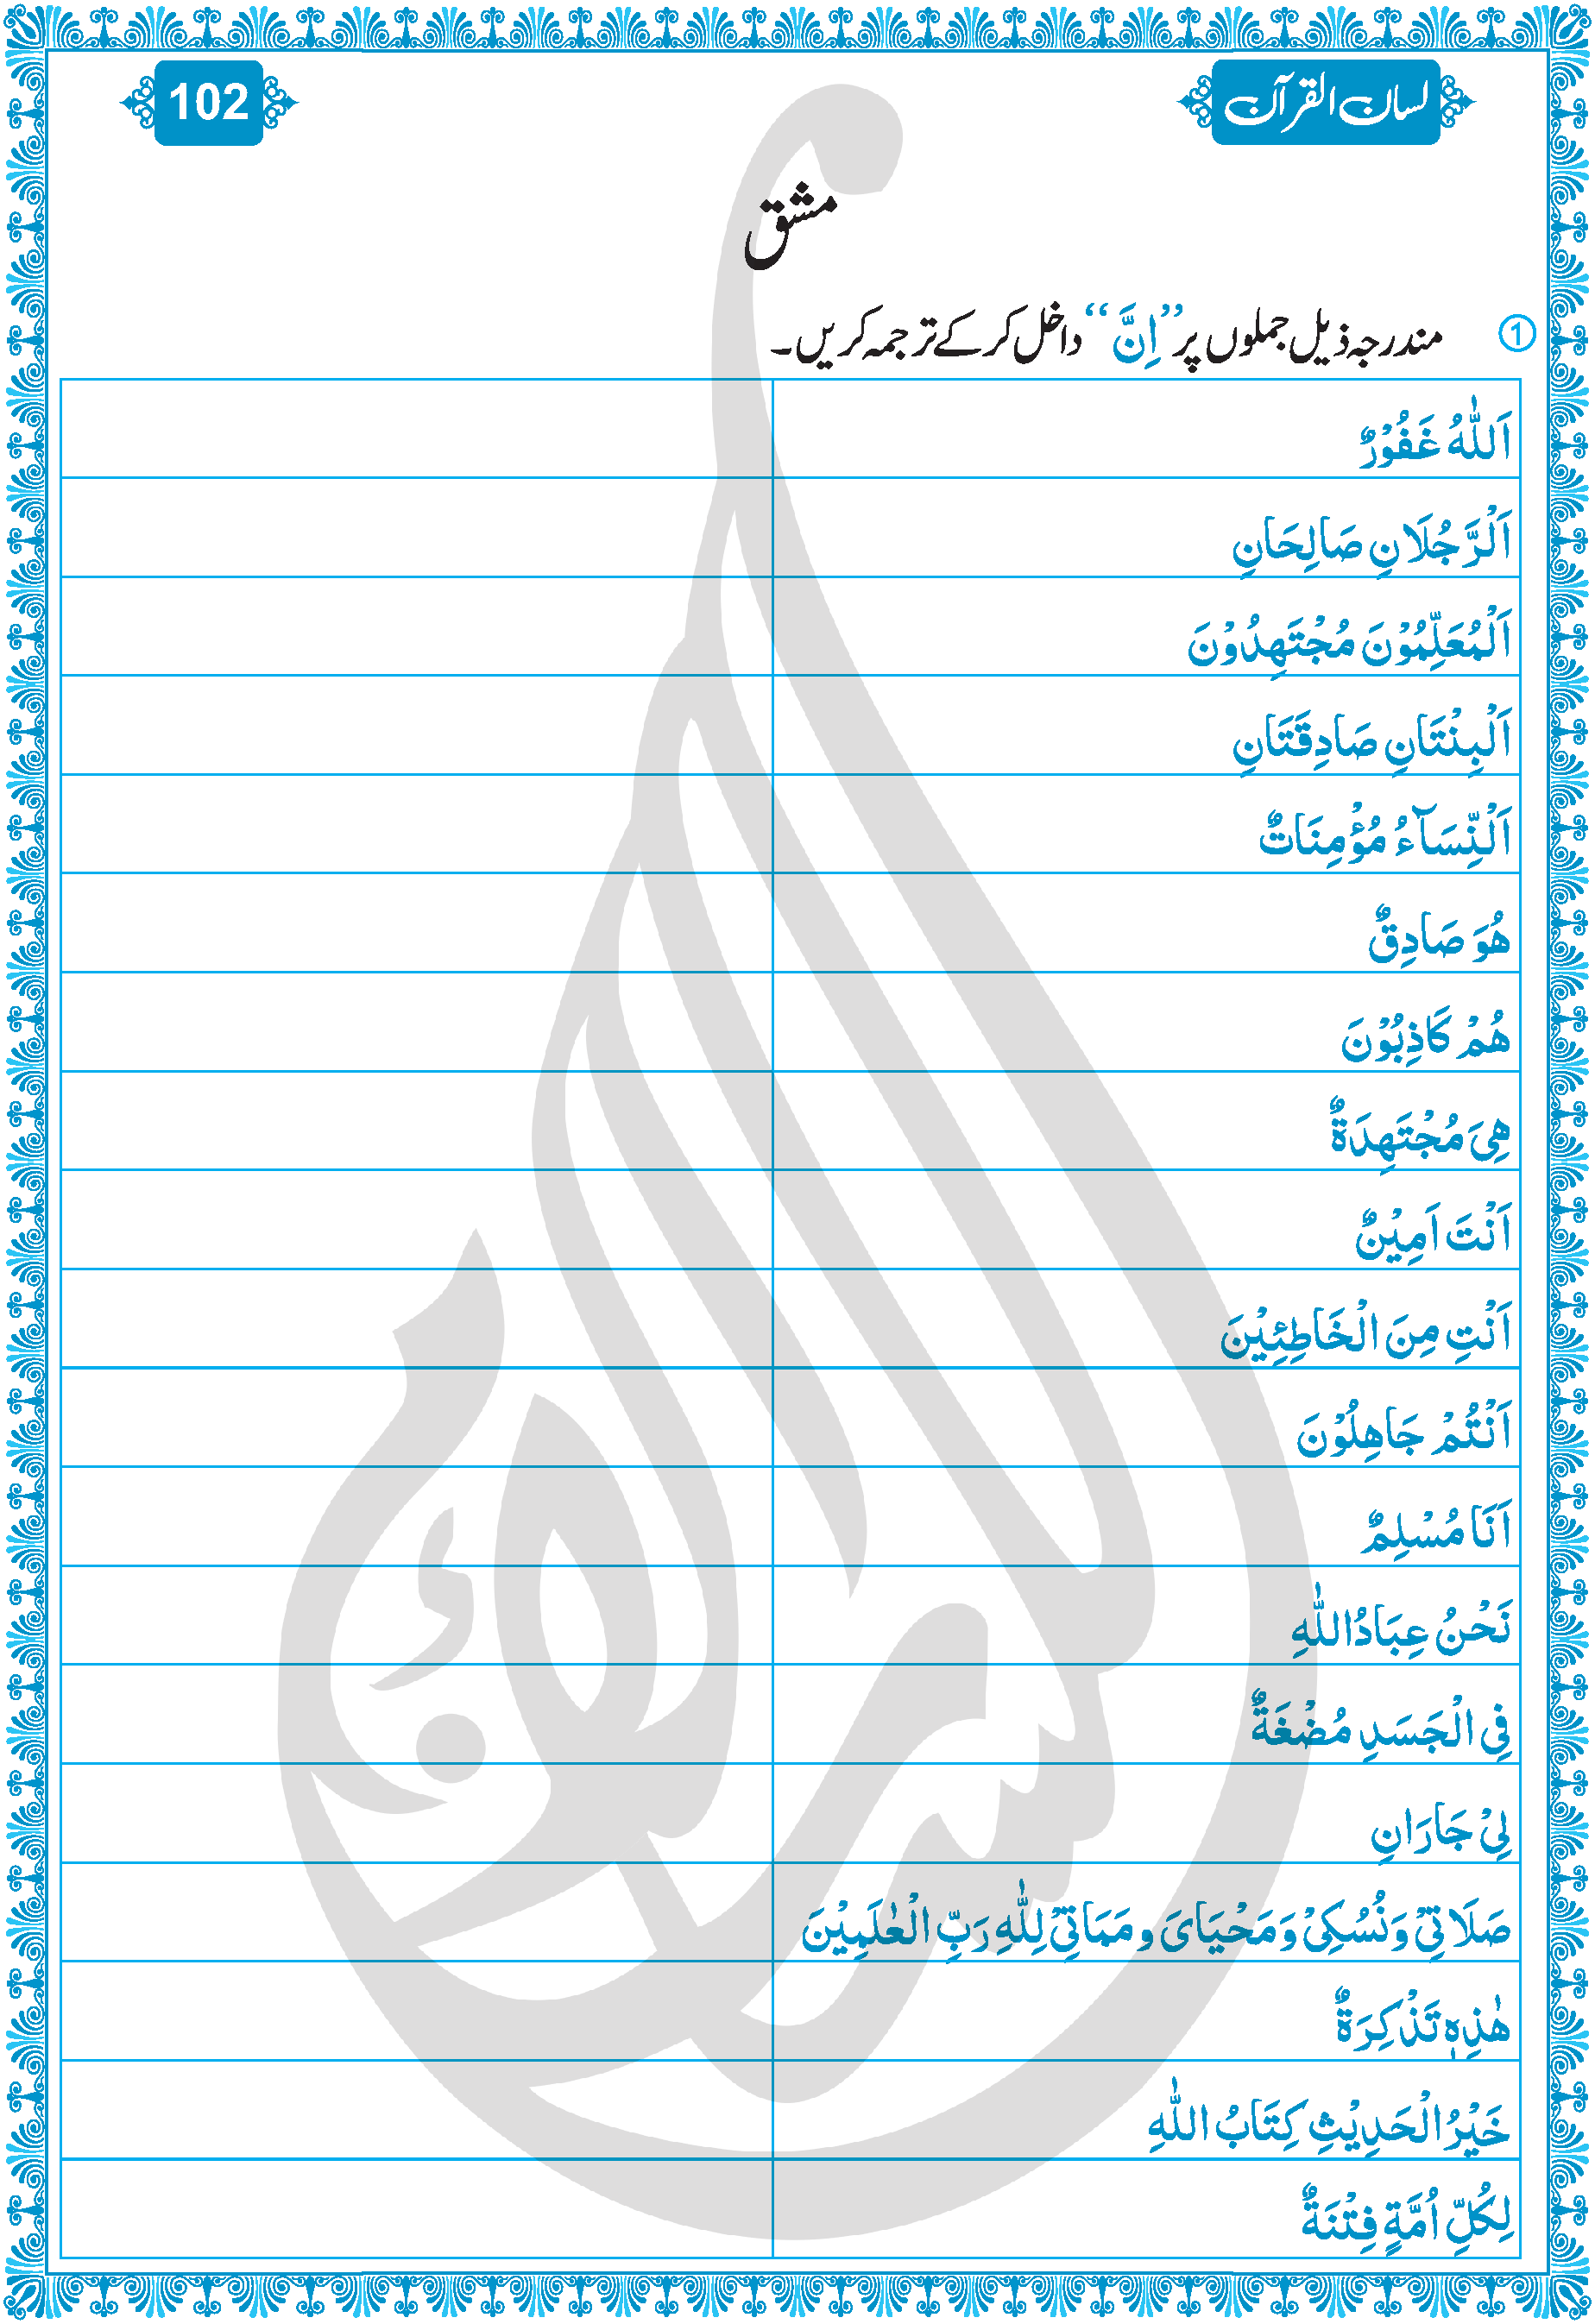 لسان القرآن
102
مشق
1 مندرجہ ذیل جملوں پر ”اِنَّ“ داخل کر کے ترجمہ کریں۔
اَللّٰهُ غَفُوْرٌ
اَلْرَّجُلَانِ صَالِحَانِ
اَلْمُعَلِّمُوْنَ مُجْتَهِدُوْنَ
اَلْبِنْتَانِ صَادِقَتَانِ
اَلْنِّسَآءُ مُؤْمِنَاتٌ
هُوَ صَادِقٌ
هُمْ كَاذِبُوْنَ
هِيَ مُجْتَهِدَةٌ
اَنْتَ اَمِيْنٌ
اَنْتِ مِنَ الْخَاطِئِيْنَ
اَنْتُمْ جَاهِلُوْنَ
اَنَا مُسْلِمٌ
نَحْنُ عِبَادُ اللّٰهِ
فِي الْجَسَدِ مُضْغَةٌ
لِيْ جَارَانِ
صَلَاتِيْ وَنُسُكِيْ وَمَحْيَايَ و مَمَاتِيْ لِلّٰهِ رَبِّ الْعٰلَمِيْنَ
هٰذِهٖ تَذْكِرَةٌ
خَيْرُ الْحَدِيْثِ كِتَابُ اللّٰهِ
لِكُلِّ اُمَّةٍ فِتْنَةٌ